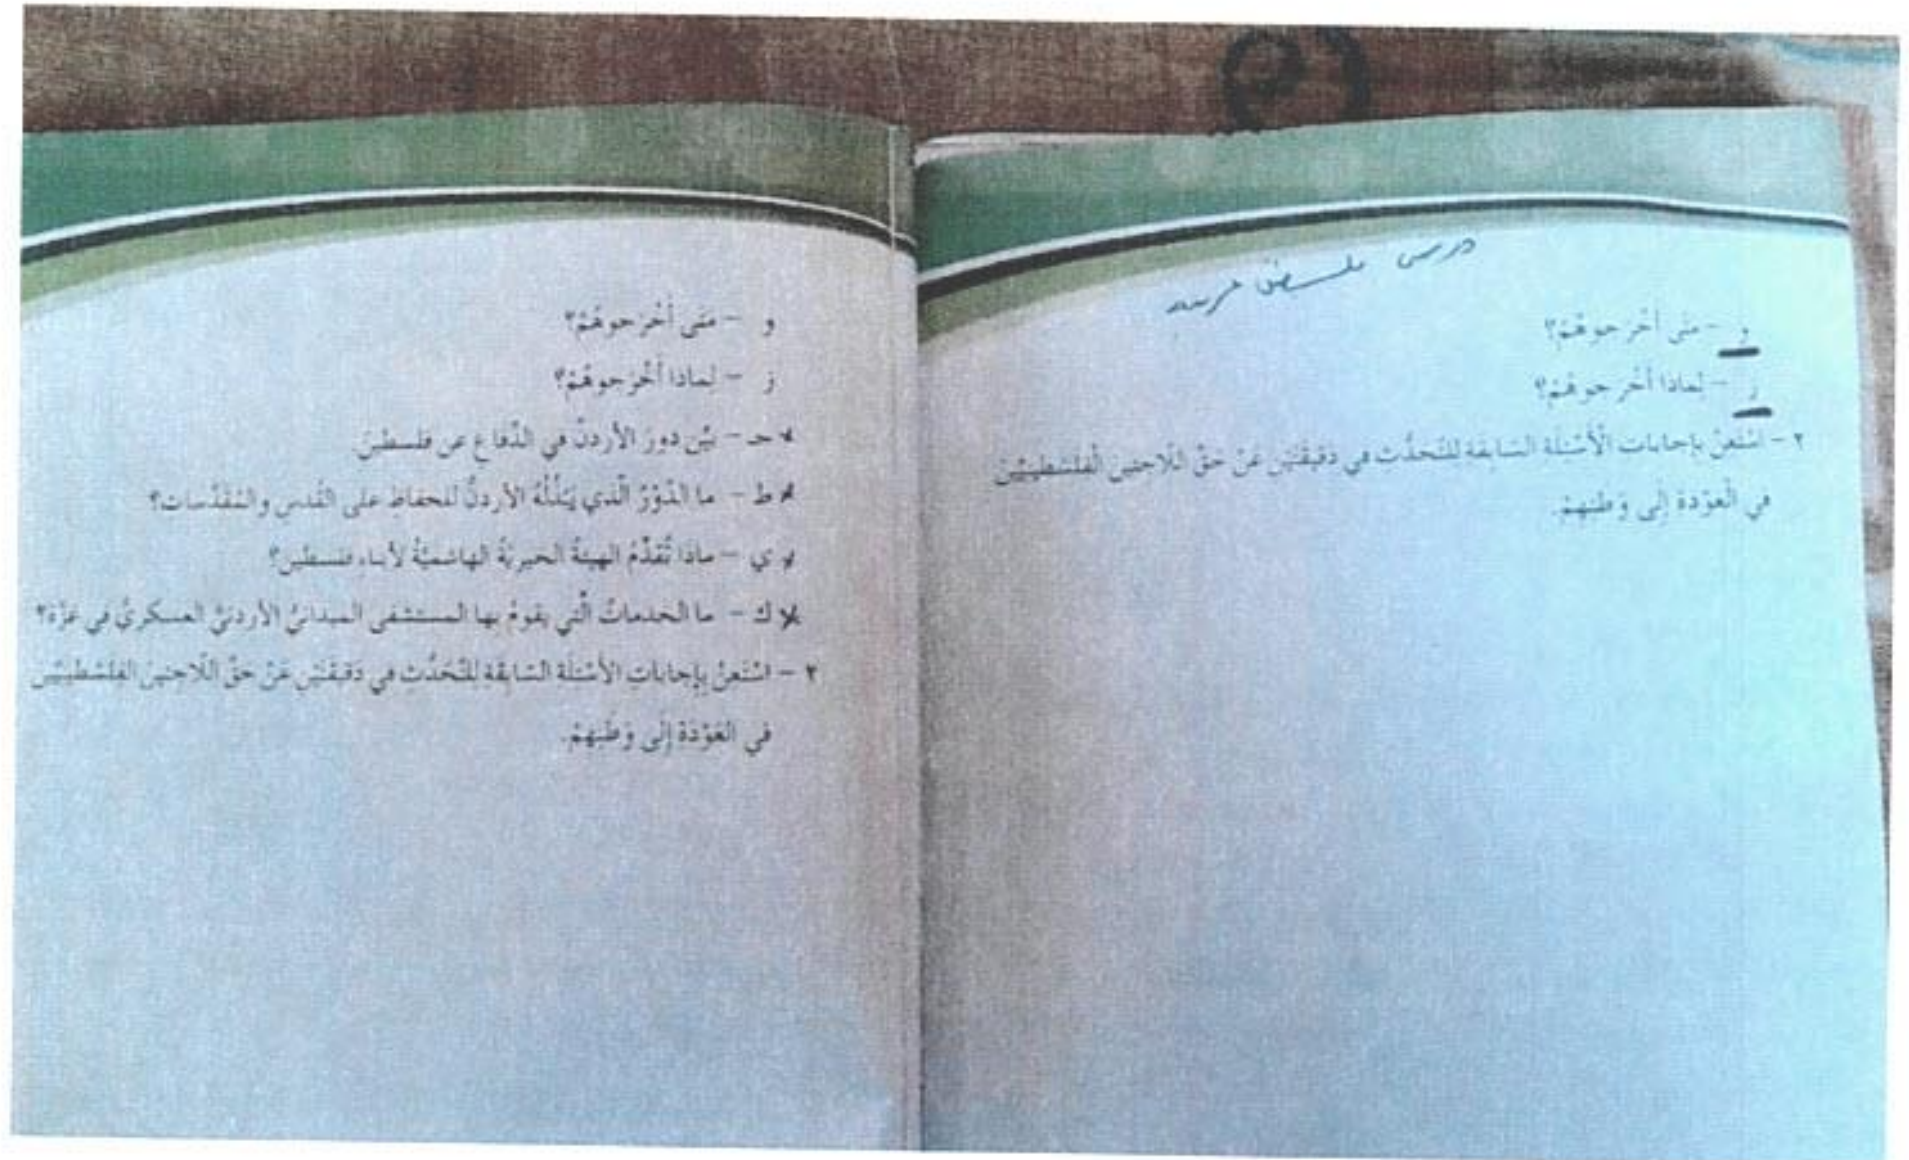 درس فلسطين عربية
و - متى أَخْرَجوهُمْ؟
ز - لماذا أَخْرَجوهُمْ؟
٢ - اسْتَعِنْ بإجابات الْأَسْئِلَة السّابِقَة للتّحَدُّثِ في دَقيقَتَيْنِ عَنْ حَقِّ اللّاجئينَ الْفِلَسْطينِيّينَ
في الْعَوْدَة إلَى وَطَنِهِمْ.
و - مَتى أَخْرَجوهُمْ؟
ز - لِماذا أَخْرَجوهُمْ؟
حـ - بيّن دورَ الأردنّ في الدِّفاع عن فلسطينَ
ط - ما الدَّوْرُ الّذي يَبْذُلُهُ الأردنُّ للحفاظِ على القُدسِ والمُقَدَّسات؟
ي - ماذا تُقَدِّمُ الهيئةُ الخيريّةُ الهاشميّةُ لأبناء فلسطين؟
ك - ما الخدماتُ الّتي يقومُ بها المستشفى الميدانيُّ الأردنيُّ العسكريُّ في غزّة؟
٢ - اسْتَعِنْ بِإجاباتِ الأَسْئِلَة السّابِقَةِ لِلتَّحَدُّثِ في دَقيقَتَيْنِ عَنْ حَقِّ اللّاجئينَ الفِلَسْطينِيّينَ
في العَوْدَةِ إلَى وَطَنِهِمْ.